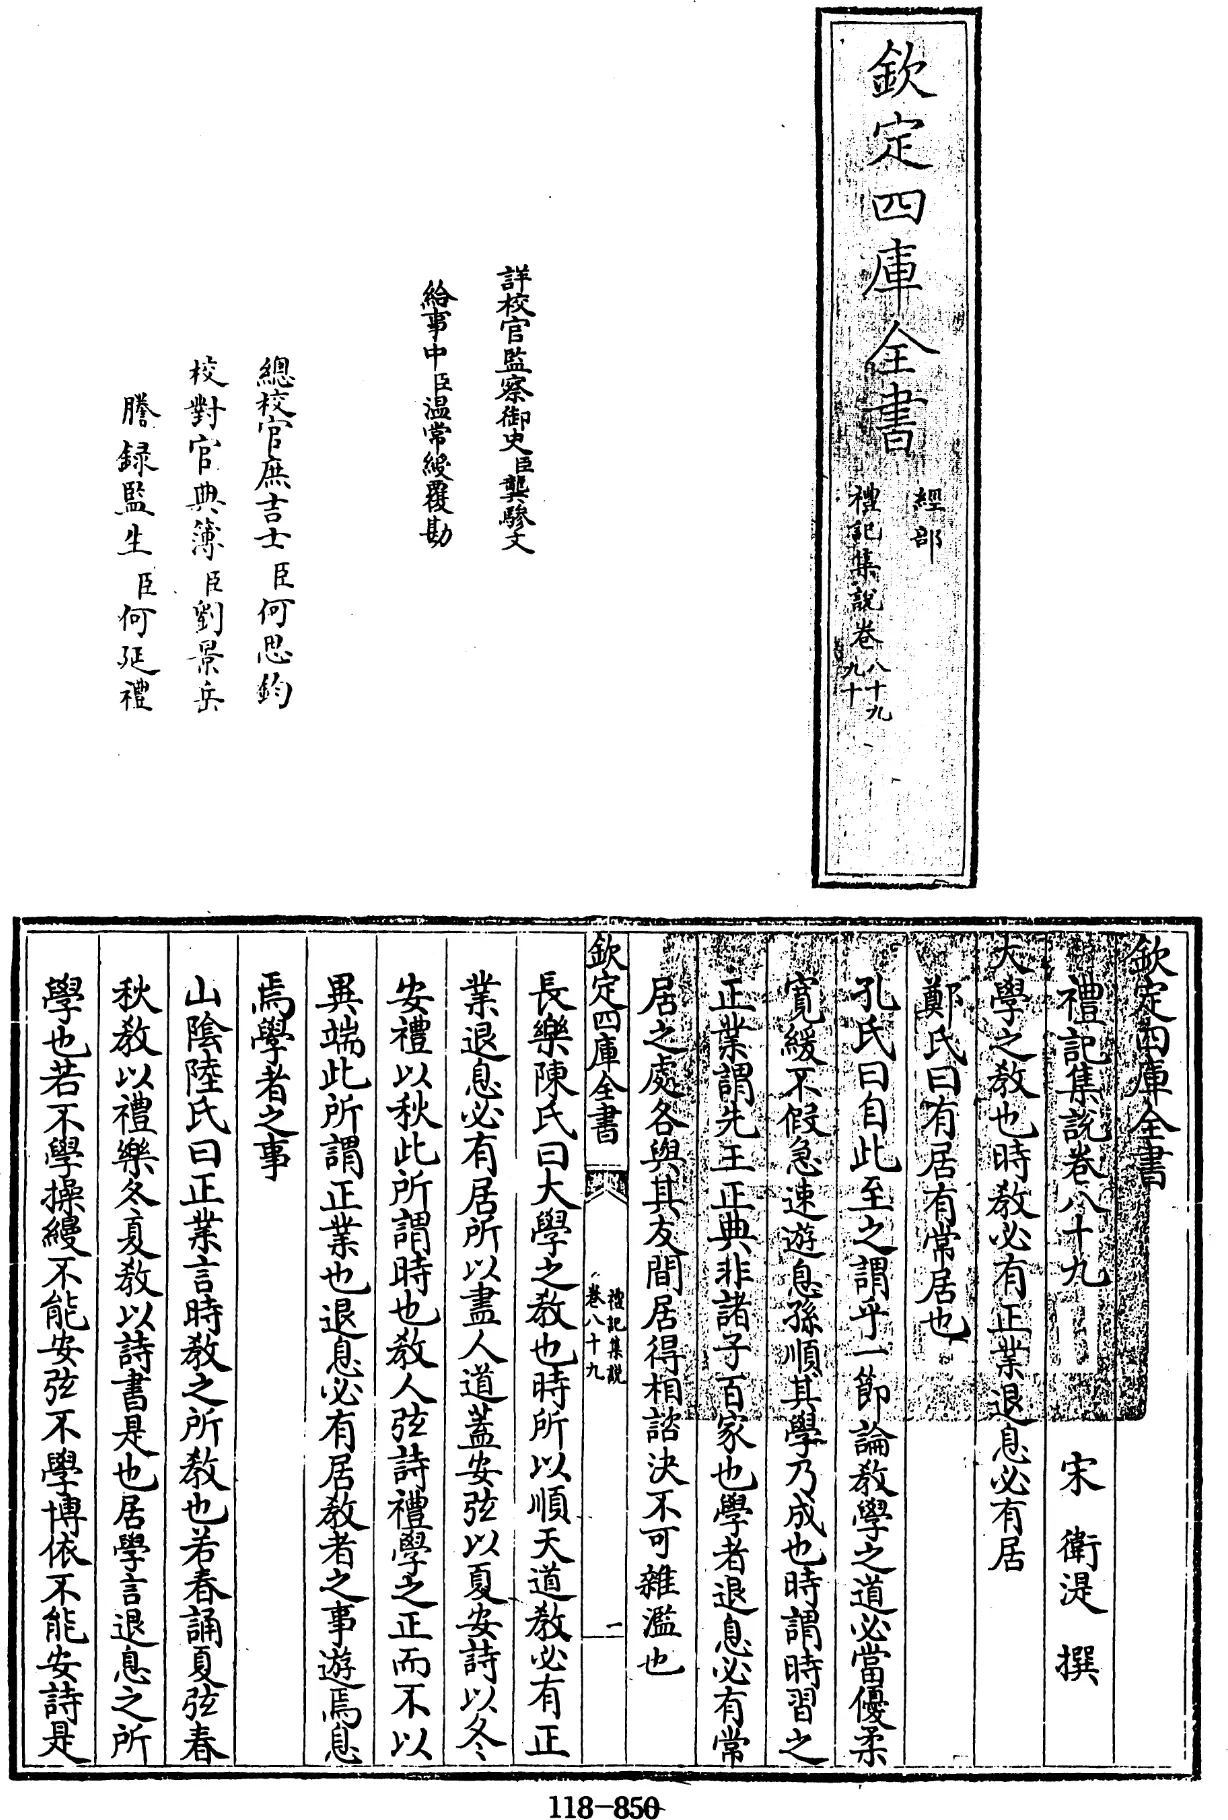 欽定四庫全書
經部
禮記集說卷八十九
九十
詳校官監察御史臣龔驂文
給事中臣温常綬覆勘
總校官庶吉士臣何思鈞
校對官典簿臣劉景岳
謄録監生臣何延禮
欽定四庫全書
禮記集說卷八十九 宋 衛湜 撰
大學之教也時教必有正業退息必有居
鄭氏曰有居有常居也
孔氏曰自此至之謂乎一節論教學之道必當優柔
寛緩不假急速遊息孫順其學乃成也時謂時習之
正業謂先王正典非諸子百家也學者退息必有常
居之處各與其友間居得相諮決不可雜濫也
欽定四庫全書
禮記集說
卷八十九
一
長樂陳氏曰大學之教也時所以順天道教必有正
業退息必有居所以盡人道蓋安弦以夏安詩以冬
安禮以秋此所謂時也教人弦詩禮學之正而不以
異端此所謂正業也退息必有居教者之事遊焉息
焉學者之事
山陰陸氏曰正業言時教之所教也若春誦夏弦春
秋教以禮樂冬夏教以詩書是也居學言退息之所
學也若不學操縵不能安弦不學博依不能安詩是
118-850